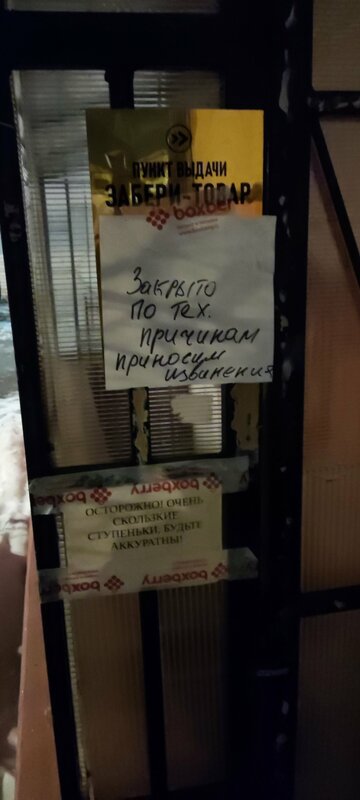 ПУНКТ ВЫДАЧИ
ЗАБЕРИ-ТОВАР
boxberry
Закрыто
по тех.
причинам
приносим
извинения
boxberry
boxberry
ОСТОРОЖНО! ОЧЕНЬ
СКОЛЬЗКИЕ
СТУПЕНЬКИ, БУДЬТЕ
АККУРАТНЫ!
boxberry
boxberry